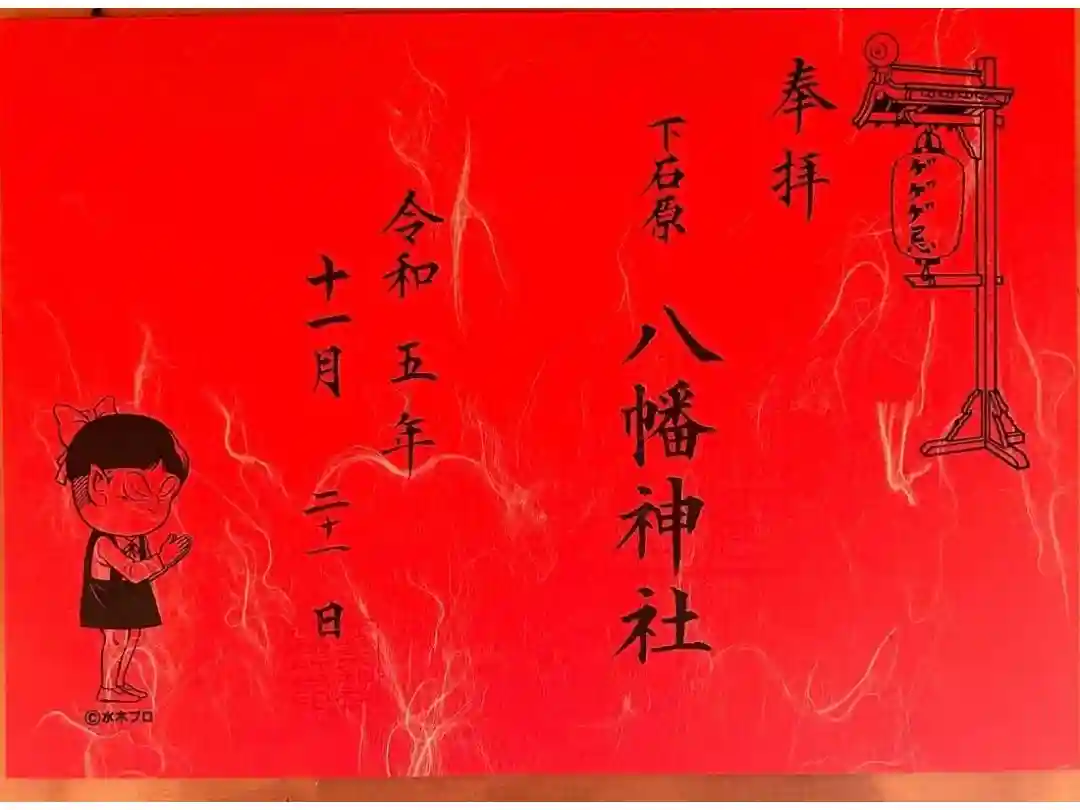 奉拝
ゲゲゲ忌
下石原
八幡神社
令和五年
十一月二十一日
©水木プロ